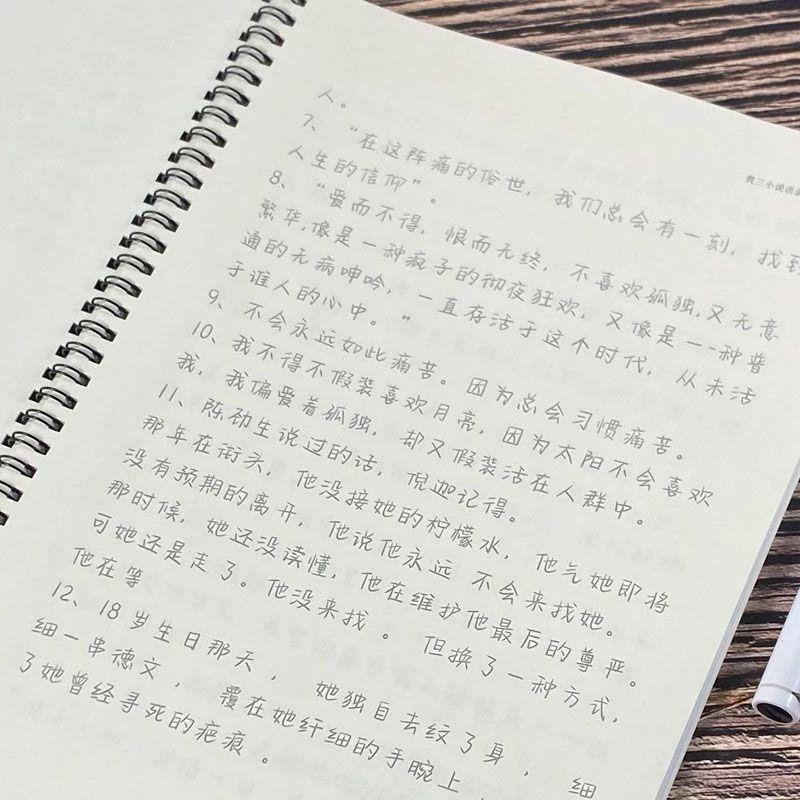 黄三小说语录
人。
7、“在这阵痛的俗世，我们总会有一刻，找到
人生的信仰”。
8、“爱而不得，恨而无终，不喜欢孤独，又无意
繁华，像是一种疯子的彻夜狂欢，又像是一一种普
通的无病呻吟，一直存活于这个时代，从未活
于谁人的心中。”
9、不会永远如此痛苦。因为总会习惯痛苦。
10、我不得不假装喜欢月亮，因为太阳不会喜欢
我，我偏爱着孤独，却又假装活在人群中。
11、陈劲生说过的话，倪迦记得。
那年在街头，他没接她的柠檬水，他气她即将
没有预期的离开，他说他永远 不会来找她。
那时候，她还没读懂，他在维护他最后的尊严。
可她还是走了。他没来找。 但换了一种方式，
他在等
12、18岁生日那天， 她独自去纹了身， 细
细一串德文， 覆在她纤细的手腕上，
了她曾经寻死的疤痕。